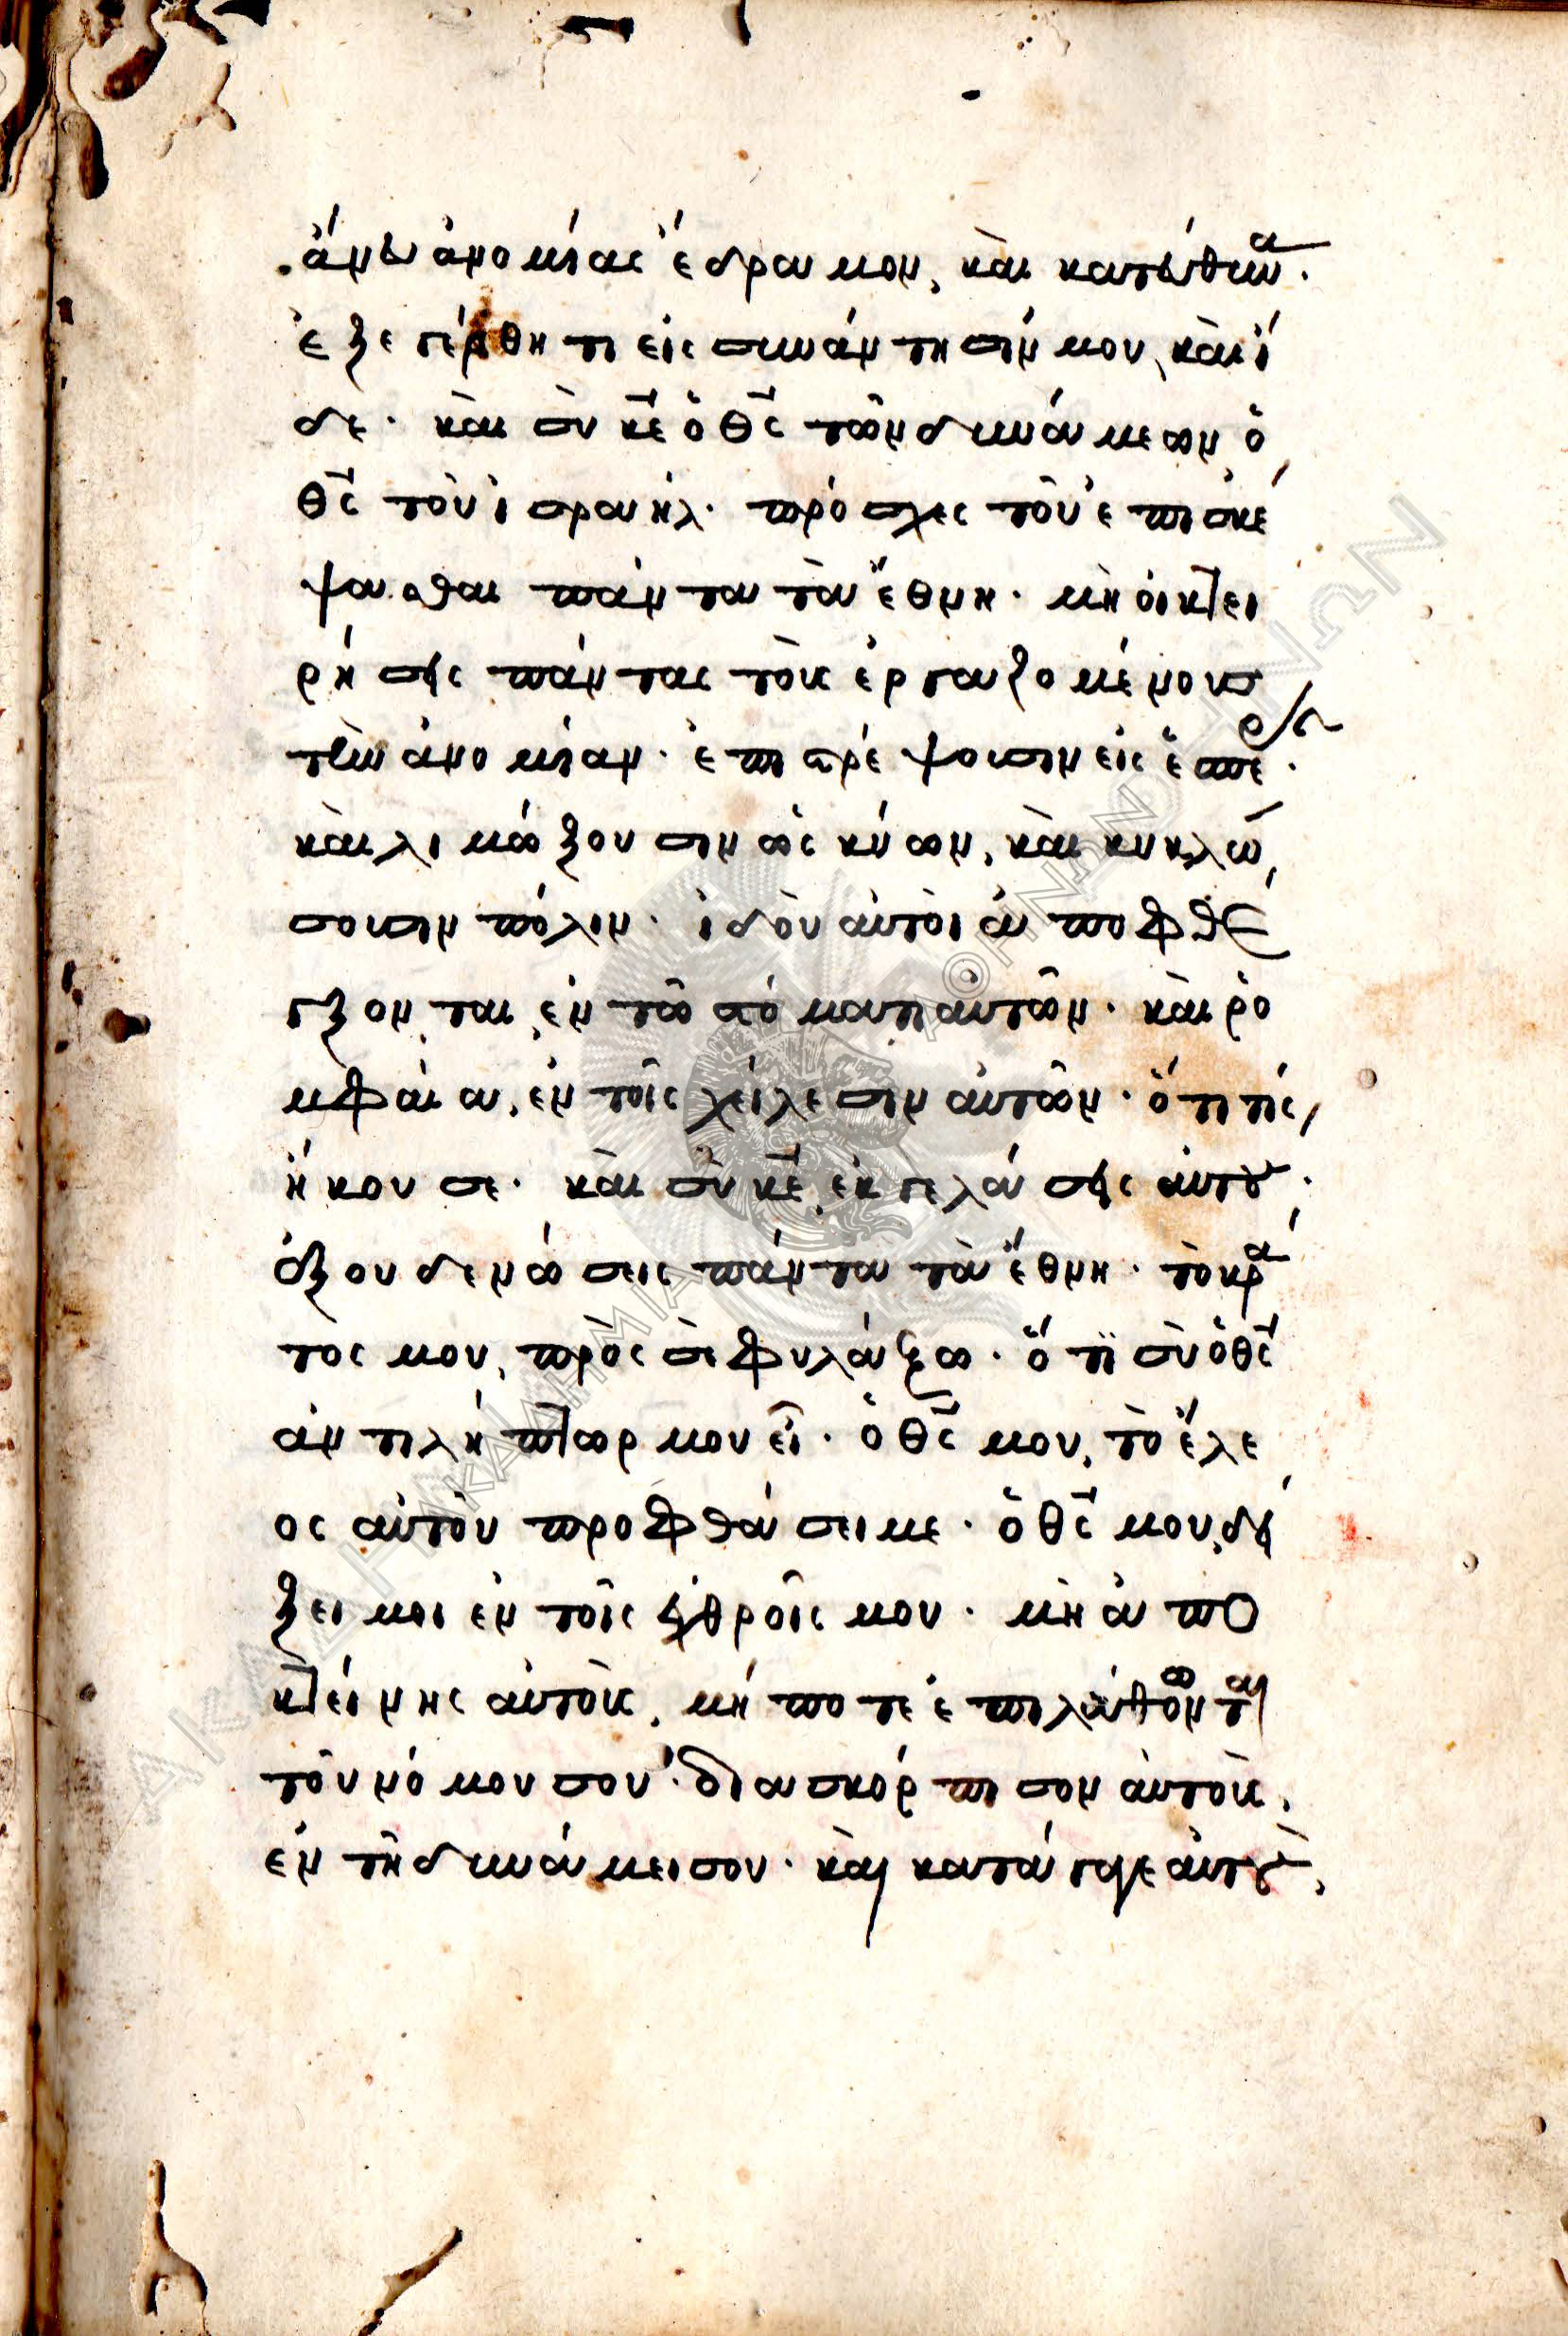 ἄνευ ἀνομίας ἔδραμον, καὶ κατεύθυνα.
ἐξεγέρθητι εἰς συνάντησίν μου, καὶ ἴ
δε. καὶ σὺ κ̅ε̅ ὁ θ̅ς̅ τῶν δυνάμεων, ὁ
θ̅ς̅ τοῦ ἰσραήλ. πρόσχες τοῦ ἐπισκέ
ψασθαι πάντα τὰ ἔθνη. μὴ οἰκτει
ρήσῃς πάντας τοὺς ἐργαζομένους
τὴν ἀνομίαν. ἐπιστρέψουσιν εἰς ἑσπέραν.
καὶ λιμώξουσιν ὡς κύων, καὶ κυκλώ
σουσιν πόλιν. ἰδοὺ αὐτοὶ ἀποφθέ
γξονται ἐν τῷ στόματι αὐτῶν. καὶ ῥο
μφαία, ἐν τοῖς χείλεσιν αὐτῶν. ὅτι τίς
ἤκουσε. καὶ σὺ κ̅ε̅ ἐκγελάσῃς αὐτούς.
ἐξουδενώσεις πάντα τὰ ἔθνη. τὸ κρά
τος μου, πρὸς σὲ φυλάξω. ὅτι σὺ ὁ θ̅ς̅
ἀντιλήπτωρ μου εἶ. ὁ θ̅ς̅ μου, τὸ ἔλε
ος αὐτοῦ προφθάσει με. ὁ θ̅ς̅ μου, δεί
ξει μοι ἐν τοῖς ἐχθροῖς μου. μὴ ἀπο
κτείνῃς αὐτούς, μήποτε ἐπιλάθωνται
τοῦ νόμου σου. διασκόρπισον αὐτούς,
ἐν τῇ δυνάμει σου. καὶ κατάγαγε αὐτούς,
ΑΚΑΔΗΜΙΑ ΑΘΗΝΩΝ